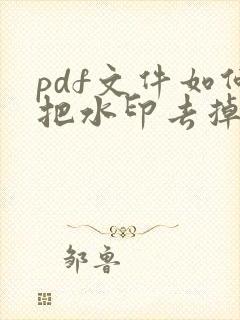 pdf文件如何
把水印去掉
邹鲁